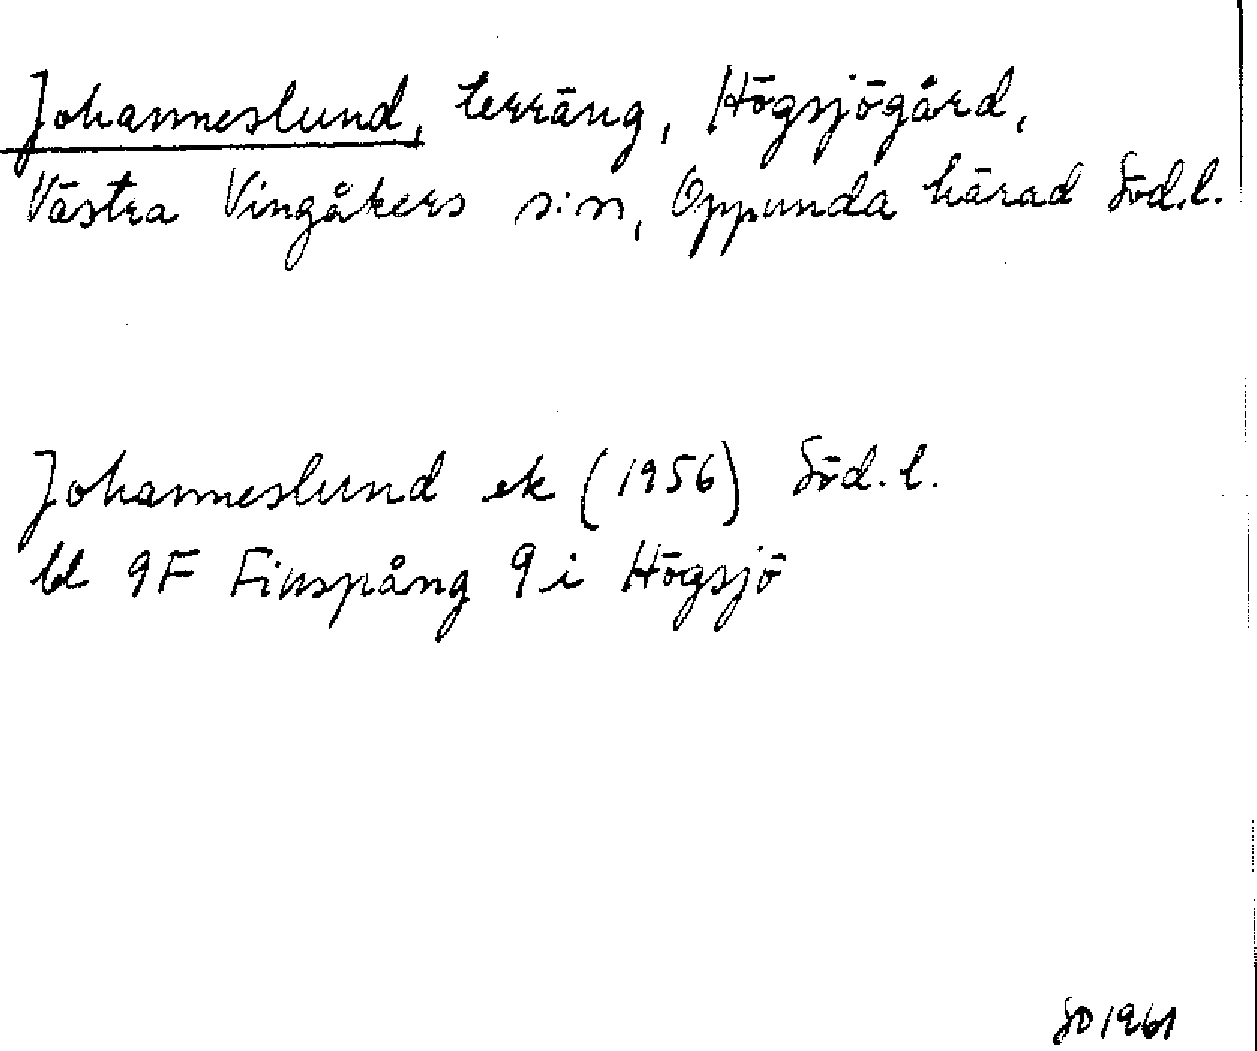 Johanneslund, terräng, Högsjögård,
Västra Vingåkers s:n, Oppunda härad Söd.l.
Johanneslund ek (1956) Söd.l.
bl 9F Finspång 9i Högsjö
SD 1961